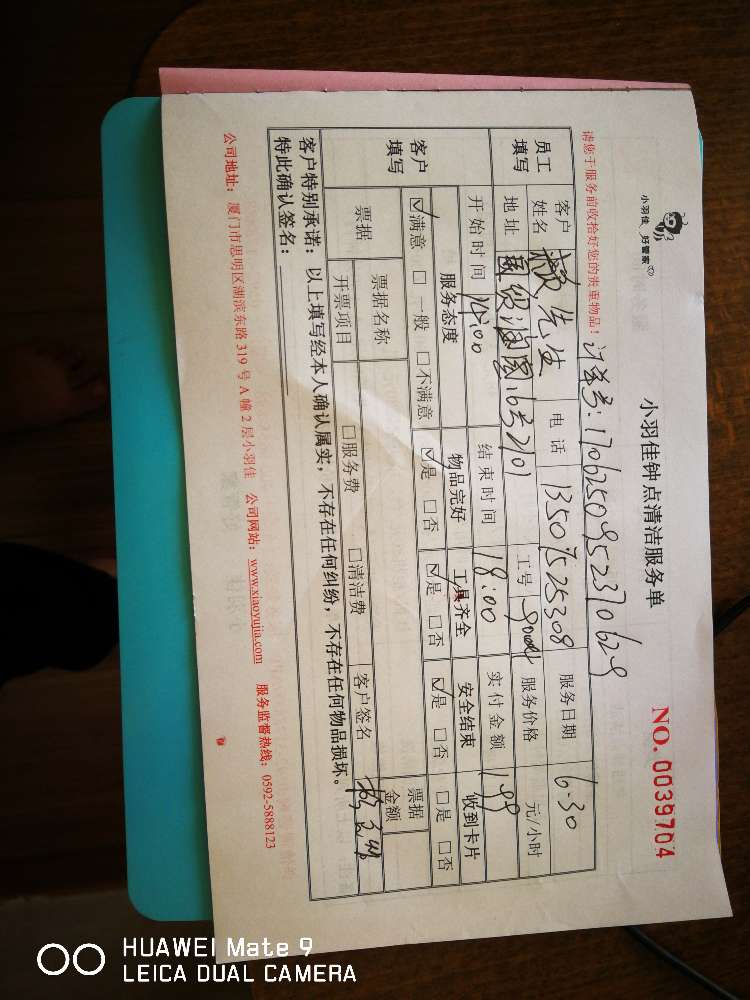 小羽佳 好管家
小羽佳钟点清洁服务单
NO. 0039704
请您于服务前收拾好您的贵重物品！
订单号: 1706250952370629
员工填写
客户姓名 先生 电话 13507525308 服务日期 6.30
地址 国贸海景16号2101 工号 服务价格 元/小时
开始时间 14:00 结束时间 18:00 实付金额 199
客户填写
服务态度 物品完好 工具齐全 安全结束 收到卡片
☑满意 □一般 □不满意 ☑是 □否 ☑是 □否 ☑是 □否 □是 □否
票据 票据名称 票据金额
开票项目 □服务费 □清洁费 客户签名
客户特别承诺：以上填写经本人确认属实，不存在任何纠纷，不存在任何物品损坏。
特此确认签名：
公司地址：厦门市思明区湖滨东路 319 号 A 幢 2 层小羽佳 公司网站：www.xiaoyujia.com 服务监督热线：0592-5888123
HUAWEI Mate 9
LEICA DUAL CAMERA